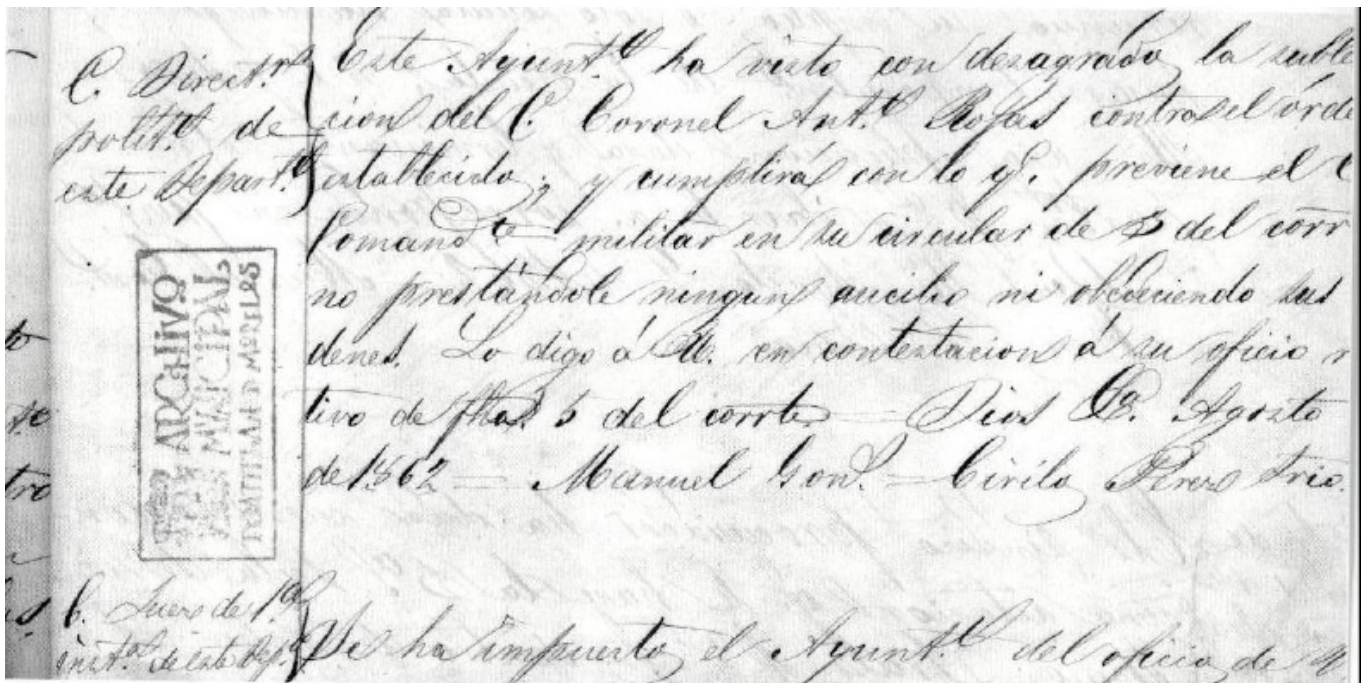 C. Direct.r
polit.co de
este Depart.to
Este Ayunt.to ha visto con desagrado la suble
cion del C. Coronel Ant.o Rojas contra el órde
establecido; y cumplirá con lo q.e previene el C
Comand.te militar en su circular de 3 del corr
no prestándole ningun aucilio ni obedeciendo sus
denes. Lo digo á U. en contestacion á su oficio r
tivo de fha. 5 del corrte = Dios &a. Agosto
de 1862 = Manuel Gon.z = Cirilo Perez Srio.
ARCHIVO
MUNICIPAL
C. Juez de 1.a
inst.a de este Dep.to
Se ha impuesto el Ayunt.to del oficio de U.